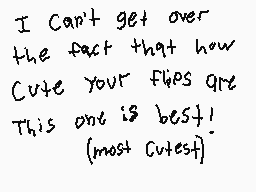 I can't get over
the fact that how
cute your flips are
This one is best!
(most cutest)